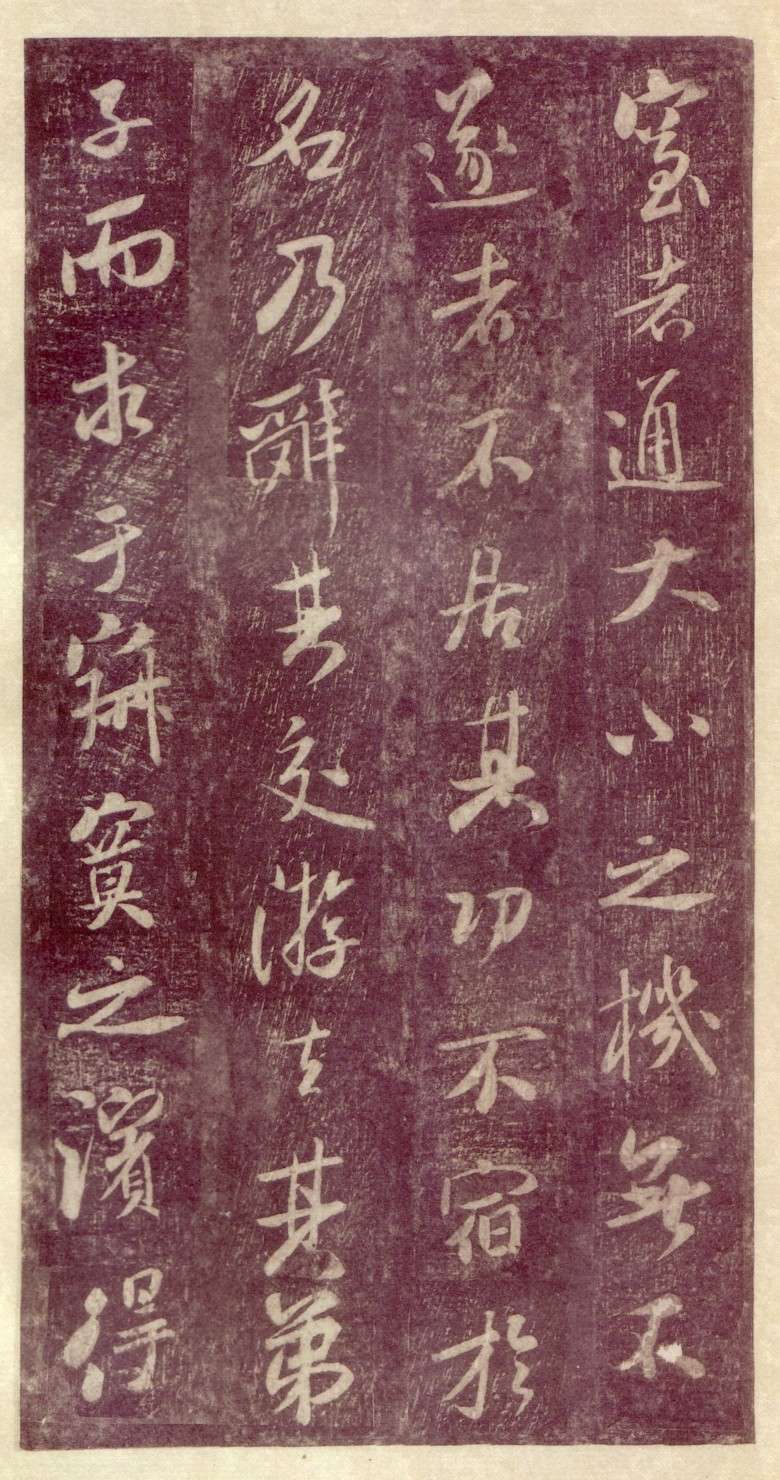 窒者通大小之機無不
遂者不居其功不宿於
名乃辭其交游去其弟
子而求于寂寞之濱得